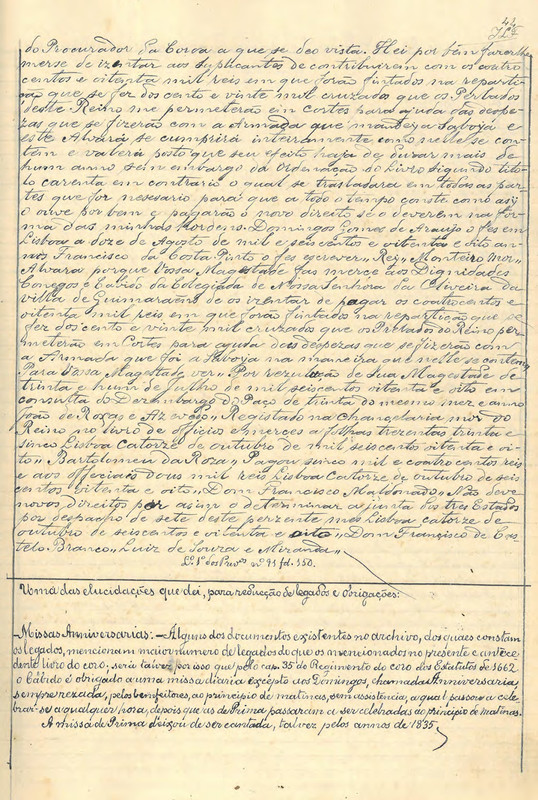 44
do Procurador da Coroa a que se deo vista. Hei por bem fazerlhe
merse de izentar aos suplicantes de contribuirem com os coatro
centos e oitenta mil reis em que forão fintados na reparti-
ção que se fez dos cento e vinte mil cruzados que os Prelados
deste Reino me permeterão em cortes para ajuda das despe-
zas que se fizerão com a Armada que mandei a Saboja e
este Alvará se cumprirá inteiramente como nelle se con-
tem e valerá posto que seu efeito haja de durar mais de
hum anno sem embargo da Ordenação do Livro segundo titu-
lo carenta em contrario o qual se trasladara em todas as par-
tes que for nesesario para que a todo o tempo conste como asij
o ouve por bem e pagarão o novo direito se o deverem na for-
ma das minhas Hordens. Domingos Gomes de Araujo o fes em
Lisboa a doze de Agosto de mil e seiscentos e oitenta e oito an-
nos Francisco da Costa Pinto o fes escrever,, Rej,, Monteiro Mor,,
Alvara porque Vossa Magestade fas merce aos Dignidades
Conegos e Cabido da Colegiada de Nossa Senhora da Oliveira da
Villa de Guimaraens de os izentar de pagar os coatrocentos e
oitenta mil reis em que forão fintados na repartição que se
fez dos cento e vinte mil cruzados que os Prelados do Reino per-
meterão em Cortes para ajuda das despezas que se fizerão com
a Armada que foi a Saboja na maneira que nelle se contem,,
Para Vossa Magestade ver,, Por rezulução de Sua Magestade de
trinta e hum de Julho de mil seiscentos oitenta e oito em
consulta do Dezembargo do Paço de trinta do mesmo mez e anno
João de Roxas e Azevedo,, Registado na Changelaria mór do
Reino no livro de officios e merces a folhas trezentas trinta e
sinco Lisboa catorze de outubro de mil seiscentos oitenta e oi-
to,, Bartolomeu da Roza,, Pagou sinco mil e coatro centos reis
e aos officiais dous mil reis Lisboa catorze de outubro de seis
centos oitenta e oito,, Dom Francisco Maldonado,, Não deve
novos direitos por asim o determinar a junta dos tres Estados
por despacho de sete deste perzente mes Lisboa catorze de
outubro de seiscentos e oitenta e oito,, Dom Francisco de Cas-
telo Branco,, Luiz de Souza e Miranda,,
L.º 1º dos Priv.os nº 91 fl. 150.
Uma das elucidações que dei, para reducção de legados e obrigações:
Missas Anniversarias: — Alguns dos documentos existentes no archivo, dos quaes constam
os legados, mencionam maior numero de legados do que os mencionados no presente e antece-
dente livro do coro; seria talvez por isso que pelo cap. 35 do Regimento do coro dos Estatutos de 1662
o Cabido é obrigado a uma missa diaria excepto aos Domingos, chamada Anniversaria,
sempre rezada, pelos bemfeitores, ao principio de matinas, sem assistencia, a qual passou a cele-
brar-se a qualquer hora, depois que as de Prima passaram a ser celebradas ao principio de matinas.
A missa de Prima deixou de ser cantada, talvez pelos annos de 1835.